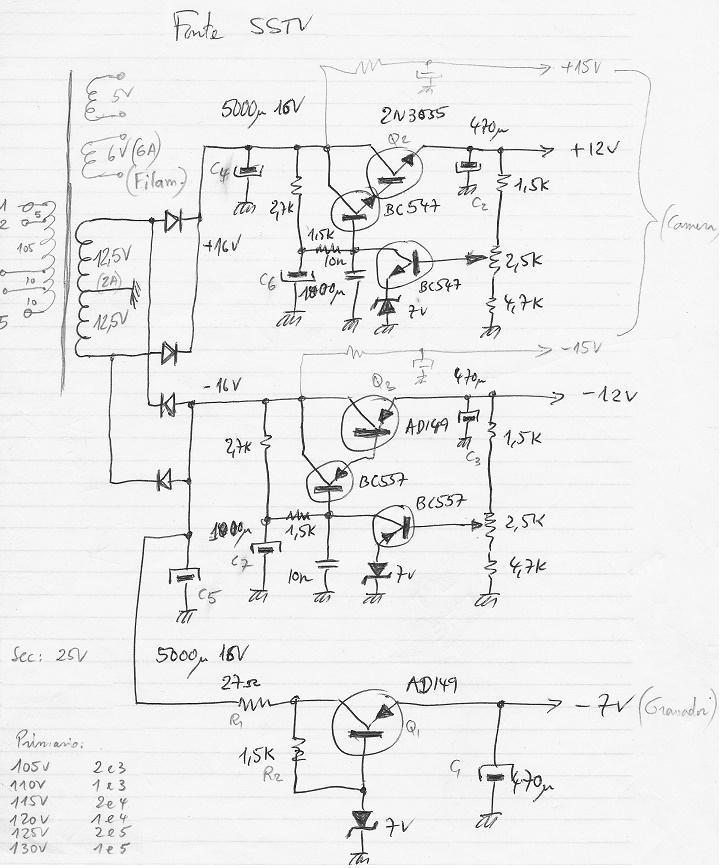 Fonte SSTV
+15V
5V
5000µ 16V
2N3055
Q2
470µ
+12V
6V (6A)
(Filam.)
C4
2,7K
BC547
C2
1,5K
(Camera)
1
2
5
105
10
10
5
12,5V
(2A)
12,5V
+16V
1,5K
10n
C6
1000µ
BC547
7V
2,5K
4,7K
-15V
-16V
Q3
470µ
-12V
AD149
C3
1,5K
2,7K
BC557
BC557
1000µ
1,5K
2,5K
C7
C5
10n
7V
4,7K
Sec: 25V
5000µ 16V
27Ω
R1
AD149
Q1
-7V (Gravador)
1,5K
R2
C1
470µ
7V
Primario:
105V 2 e 3
110V 1 e 3
115V 2 e 4
120V 1 e 4
125V 2 e 5
130V 1 e 5